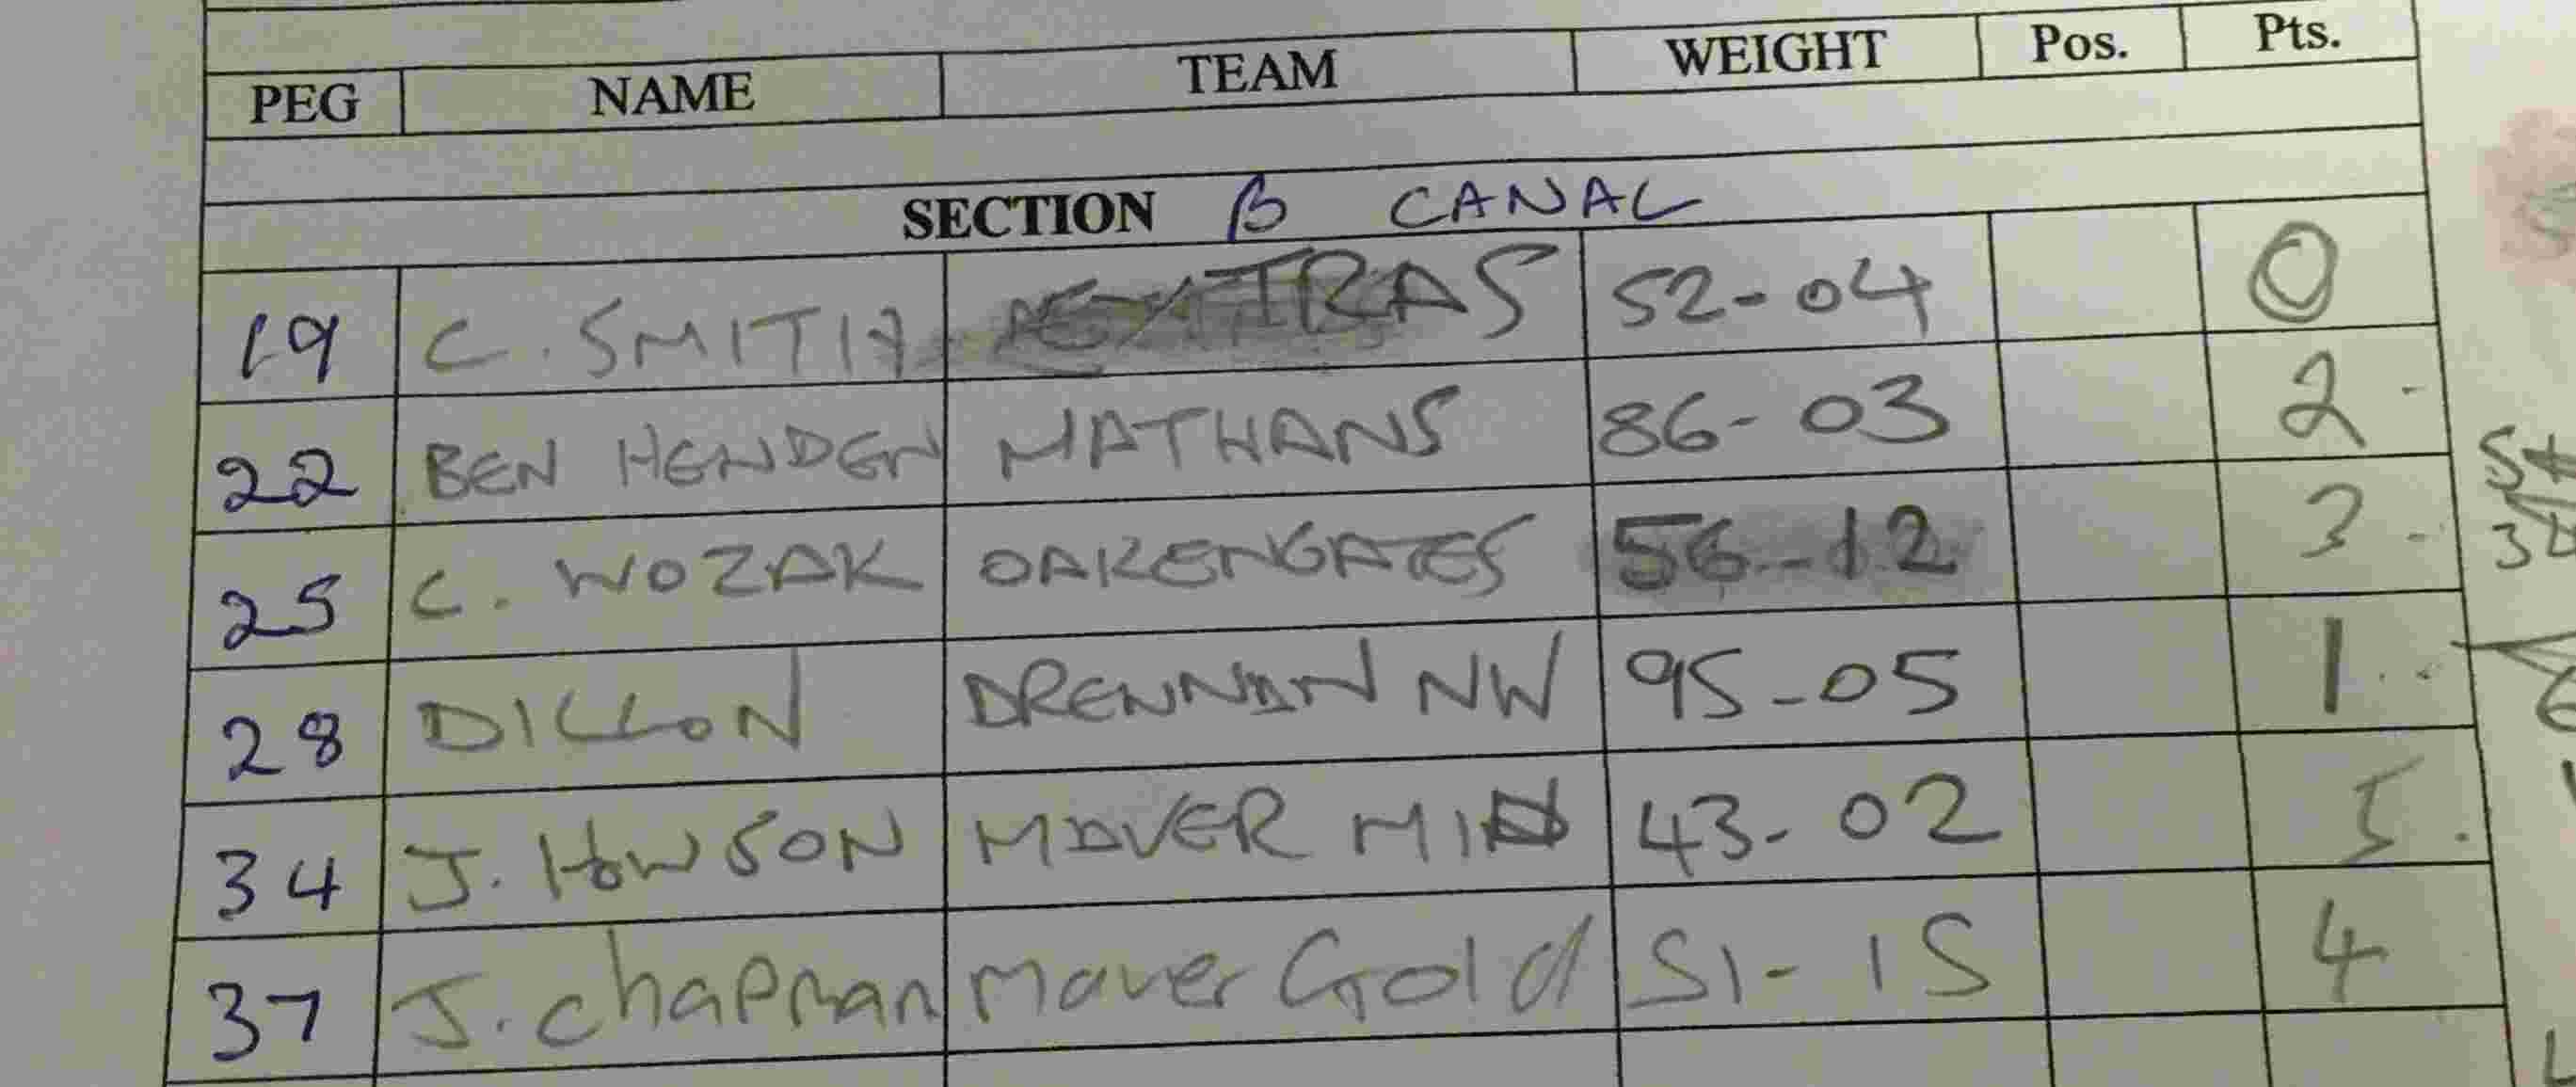 PEG NAME TEAM WEIGHT Pos. Pts.
SECTION B CANAL
19 C. SMITH EXTRAS 52-04 0
22 BEN HENDEN NATHANS 86-03 2
25 C. WOZAK OAKENGATES 56-12 3
28 DILLON DRENNAN NW 95-05 1
34 J. HOWSON MAVER MIN 43-02 5
37 J. Chapman Maver Gold 51-15 4